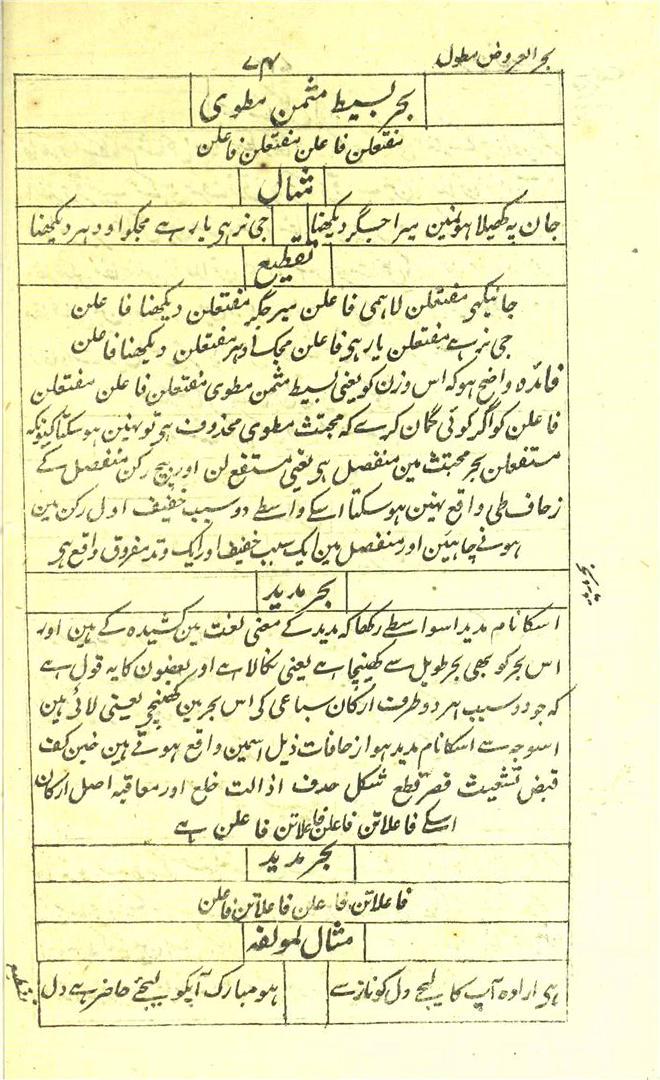 بحر العروض مطول
۷۴
بحر بسیط مثمن مطوی
مفتعلن فاعلن مفتعلن فاعلن
مثال
جان پہ کھیلا ہونمین میرا جگر دیکھنا
جی نرہی یار ہے مجکو اودہر دیکھنا
تقطیع
جانپکھی مفتعلن لاہمی فاعلن میرجگر مفتعلن دیکھنا فاعلن
جی نرہے مفتعلن یارہی فاعلن مجکاودہر مفتعلن دیکھنا فاعلن
فائدہ واضح ہو کہ اس وزن کو یعنی بسیط مثمن مطوی مفتعلن فاعلن مفتعلن
فاعلن کو اگر کوئی گمان کرے کہ مجتث مطوی محذوف ہی تو نہین ہو سکتا کیونکہ
مستفعلن بحر مجتث مین منفصل ہی یعنی مستفع لن اور بیچ رکن منفصل کے
زحاف طی واقع نہین ہو سکتا اسکے واسطے دو سبب خفیف اول رکن مین
ہونے چاہئین اور منفصل مین ایک سبب خفیف اور ایک وتد مفروق واقع ہی
بحر مدید
بحر مدید
اسکا نام مدید اسواسطے رکھا کہ مدید کے معنی لغت مین کشیدہ کے ہین اور
اس بحر کو بھی بحر طویل سے کھینچا ہے یعنی نکالا ہے اور بعضون کا یہ قول ہے
کہ جو دو سبب ہر دو طرف ارکان سباعی کی اس بحر مین کھینچے یعنی لائے ہین
اسوجہ سے اسکا نام مدید ہوا زحافات ذیل اسمین واقع ہوتے ہین خبن کف
قبض تشعیث قصر قطع شکل حذف اذالت خلع اور معاقبہ اصل ارکان
اسکے فاعلاتن فاعلن فاعلاتن فاعلن ہے
بحر مدید
فاعلاتن فاعلن فاعلاتن فاعلن
مثال لمولفہ
ہی ارادہ آپ کا لیجے دل کو ناز سے
ہو مبارک آپکو لیجئے حاضر ہے دل
تقطیع